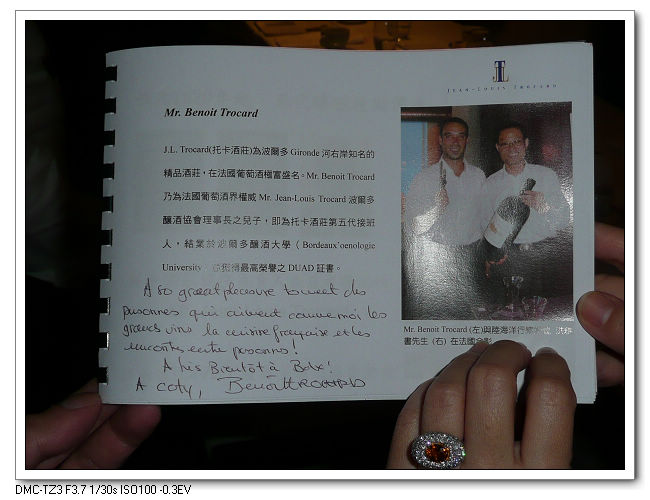 JEAN-LOUIS TROCARD
Mr. Benoit Trocard
J.L. Trocard(托卡酒莊)為波爾多 Gironde 河右岸知名的
精品酒莊，在法國葡萄酒極富盛名。Mr. Benoit Trocard
乃為法國葡萄酒界權威 Mr. Jean-Louis Trocard 波爾多
釀酒協會理事長之兒子，即為托卡酒莊第五代接班
人，結業於波爾多釀酒大學（Bordeaux'oenologie
University 最高榮譽之 DUAD 証書。
A so great pleasure to meet des
personnes qui aiment comme moi les
grands vins la cuisine française et les
rencontres entre personnes!
A très Bientôt à Bdx!
A Coty, Benoît TROCARD
Mr. Benoit Trocard (左)與陸海洋行
書先生 (右) 在法國合影
DMC-TZ3 F3.7 1/30s ISO100 -0.3EV